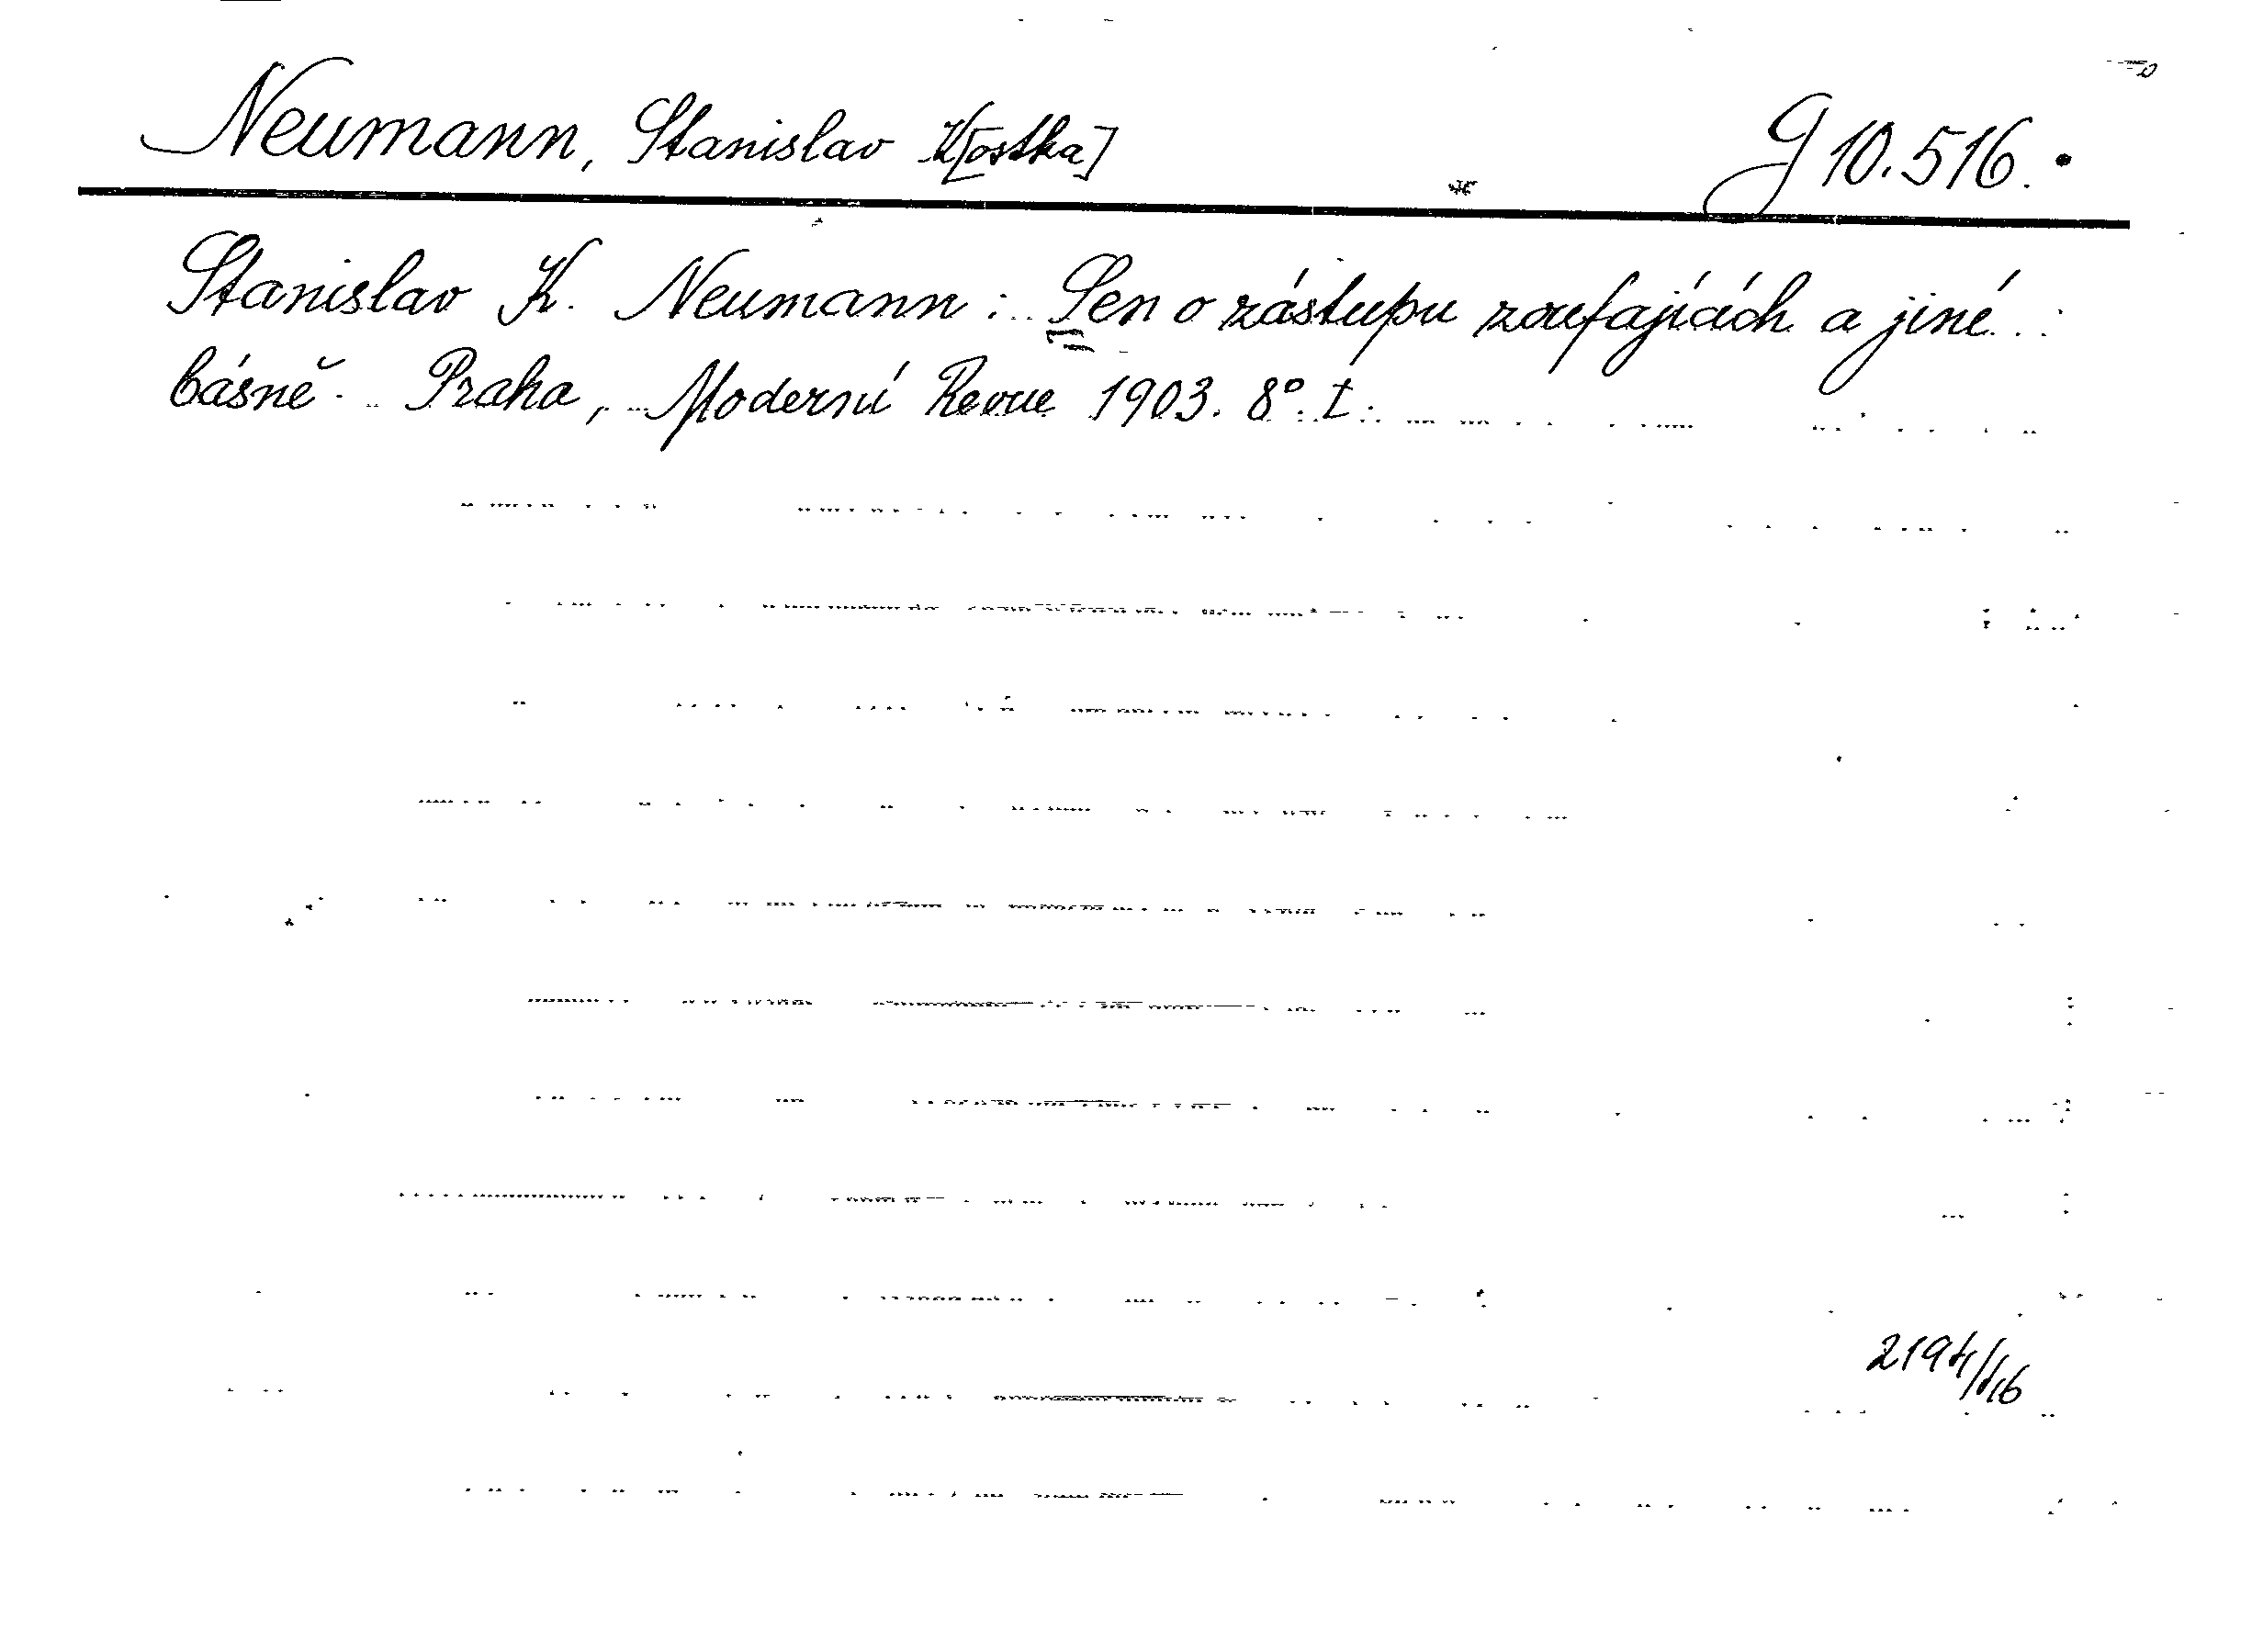 Neumann, Stanislav K[ostka] G 10.516.
Stanislav K. Neumann: Sen o zástupu zoufajících a jiné
básně. Praha, Moderní Revue 1903. 8°.